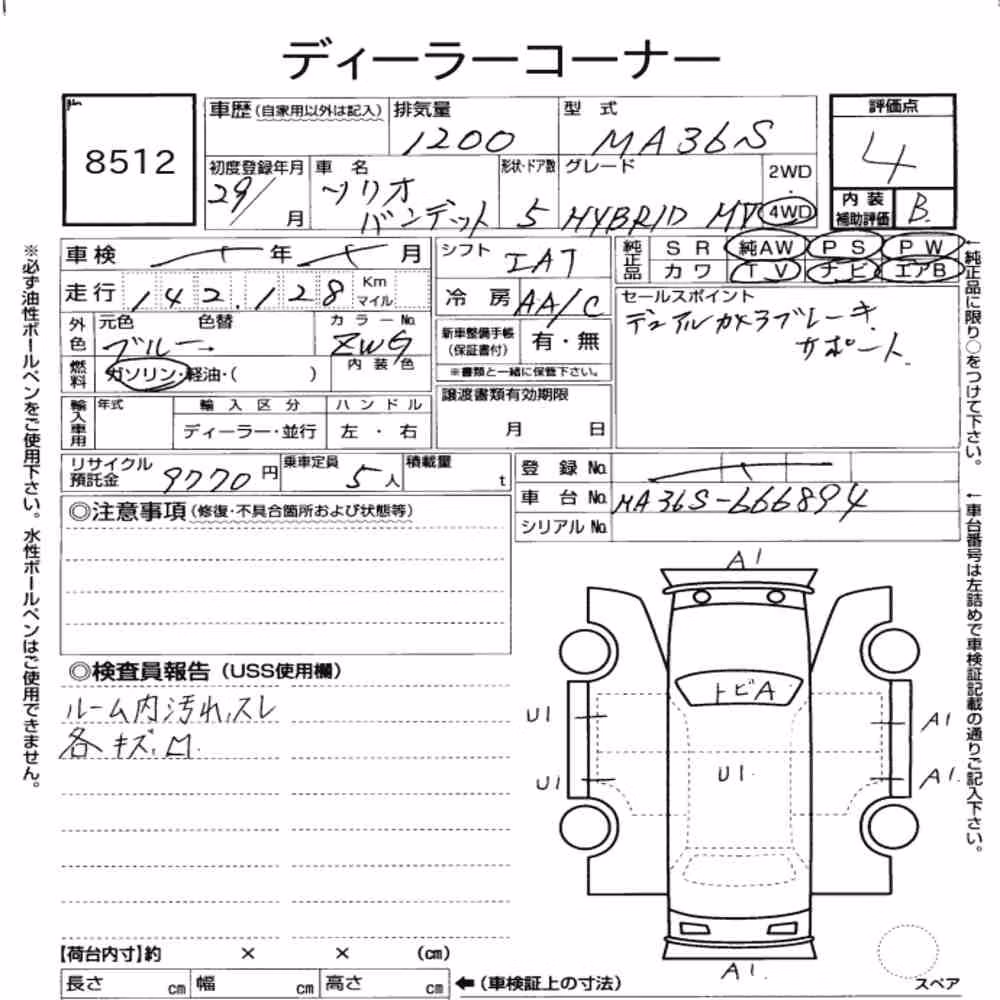 ディーラーコーナー
8512
車歴 (自家用以外は記入)
排気量
1200
型 式
MA36S
評価点
4
初度登録年月
29/ 月
車 名
ソリオ
バンデット
形状・ドア数
5
グレード
HYBRID MV
2WD
・
4WD
内 装
補助評価
B
車検 年 月
走行 142,128 Km
マイル
シフト
IAT
冷 房 AA/C
純正品
SR 純AW PS PW
カワ TV ナビ エアB
外色
元色 色替
ブルー
カラーNo.
ZWG
内 装 色
新車整備手帳
(保証書付)
有・無
※書類と一緒に保管下さい。
セールスポイント
デュアルカメラブレーキ
サポート
燃料
ガソリン・軽油・( )
輸入車用
年式
輸 入 区 分
ディーラー・並行
ハ ン ド ル
左 ・ 右
譲渡書類有効期限
月 日
リサイクル
預託金
9770 円
乗車定員
5 人
積載量
t
登 録 No.
車 台 No. MA36S-666894
シリアル No.
◎注意事項(修復・不具合箇所および状態等)
◎検査員報告(USS使用欄)
ルーム内汚れ,スレ
各キズ,凹
A1
トビA
U1
A1
U1
U1
A1
A1
スペア
【荷台内寸】約 × × (cm)
長さ cm 幅 cm 高さ cm ←(車検証上の寸法)
※必ず油性ボールペンをご使用下さい。水性ボールペンはご使用できません。
←純正品に限り○をつけて下さい。
←車台番号は左詰めで車検証記載の通りご記入下さい。